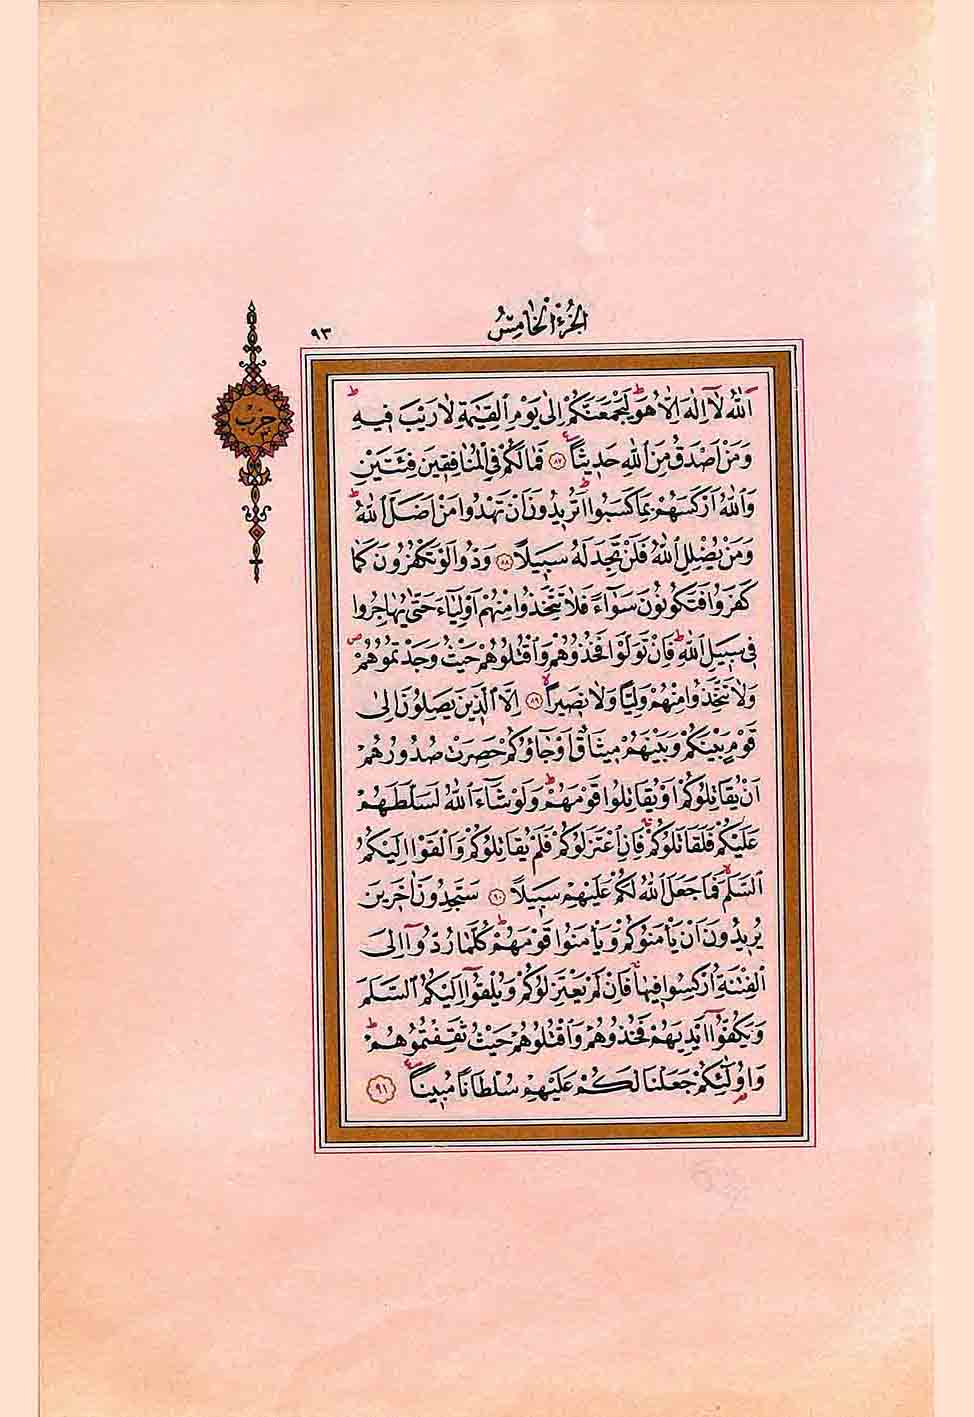 الجزء الخامس
٩٣
حزب
٣
اَللّٰهُ لَٓا اِلٰهَ اِلَّا هُوَۜ لَيَجْمَعَنَّكُمْ اِلٰى يَوْمِ الْقِيٰمَةِ لَا رَيْبَ ف۪يهِۜ
وَمَنْ اَصْدَقُ مِنَ اللّٰهِ حَد۪يثًا ﴿٨٧﴾ فَمَا لَكُمْ فِي الْمُنَافِق۪ينَ فِئَتَيْنِ
وَاللّٰهُ اَرْكَسَهُمْ بِمَا كَسَبُواۜ اَتُر۪يدُونَ اَنْ تَهْدُوا مَنْ اَضَلَّ اللّٰهُۜ
وَمَنْ يُضْلِلِ اللّٰهُ فَلَنْ تَجِدَ لَهُ سَب۪يلًا ﴿٨٨﴾ وَدُّوا لَوْ تَكْفُرُونَ كَمَا
كَفَرُوا فَتَكُونُونَ سَوَٓاءً فَلَا تَتَّخِذُوا مِنْهُمْ اَوْلِيَٓاءَ حَتّٰى يُهَاجِرُوا
ف۪ي سَب۪يلِ اللّٰهِۜ فَاِنْ تَوَلَّوْا فَخُذُوهُمْ وَاقْتُلُوهُمْ حَيْثُ وَجَدْتُمُوهُمْۖ
وَلَا تَتَّخِذُوا مِنْهُمْ وَلِيًّا وَلَا نَص۪يرًاۙ ﴿٨٩﴾ اِلَّا الَّذ۪ينَ يَصِلُونَ اِلٰى
قَوْمٍ بَيْنَكُمْ وَبَيْنَهُمْ م۪يثَاقٌ اَوْ جَٓاؤُ۫كُمْ حَصِرَتْ صُدُورُهُمْ
اَنْ يُقَاتِلُوكُمْ اَوْ يُقَاتِلُوا قَوْمَهُمْۜ وَلَوْ شَٓاءَ اللّٰهُ لَسَلَّطَهُمْ
عَلَيْكُمْ فَلَقَاتَلُوكُمْۚ فَاِنِ اعْتَزَلُوكُمْ فَلَمْ يُقَاتِلُوكُمْ وَاَلْقَوْا اِلَيْكُمُ
السَّلَمَۙ فَمَا جَعَلَ اللّٰهُ لَكُمْ عَلَيْهِمْ سَب۪يلًا ﴿٩٠﴾ سَتَجِدُونَ اٰخَر۪ينَ
يُر۪يدُونَ اَنْ يَأْمَنُوكُمْ وَيَأْمَنُوا قَوْمَهُمْۜ كُلَّمَا رُدُّٓوا اِلَى
الْفِتْنَةِ اُرْكِسُوا ف۪يهَاۚ فَاِنْ لَمْ يَعْتَزِلُوكُمْ وَيُلْقُٓوا اِلَيْكُمُ السَّلَمَ
وَيَكُفُّٓوا اَيْدِيَهُمْ فَخُذُوهُمْ وَاقْتُلُوهُمْ حَيْثُ ثَقِفْتُمُوهُمْۜ
وَاُو۬لٰٓئِكُمْ جَعَلْنَا لَكُمْ عَلَيْهِمْ سُلْطَانًا مُب۪ينًا۟ ﴿٩١﴾